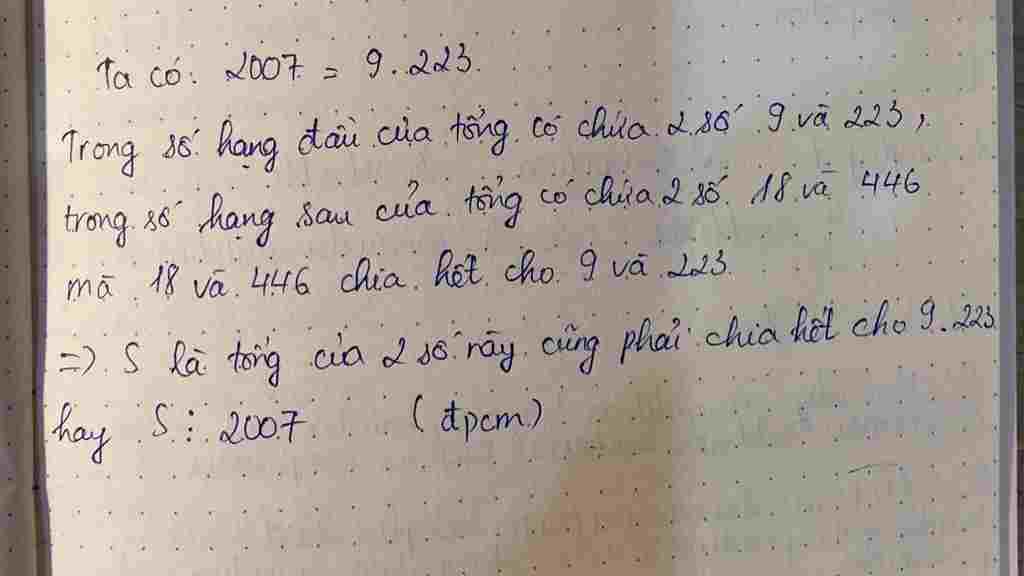 Ta có: 2007 = 9.223.
Trong số hạng đầu của tổng có chứa 2 số 9 và 223,
trong số hạng sau của tổng có chứa 2 số 18 và 446
mà 18 và 446 chia hết cho 9 và 223
=> S là tổng của 2 số này cũng phải chia hết cho 9.223
hay S ⋮ 2007 (đpcm)